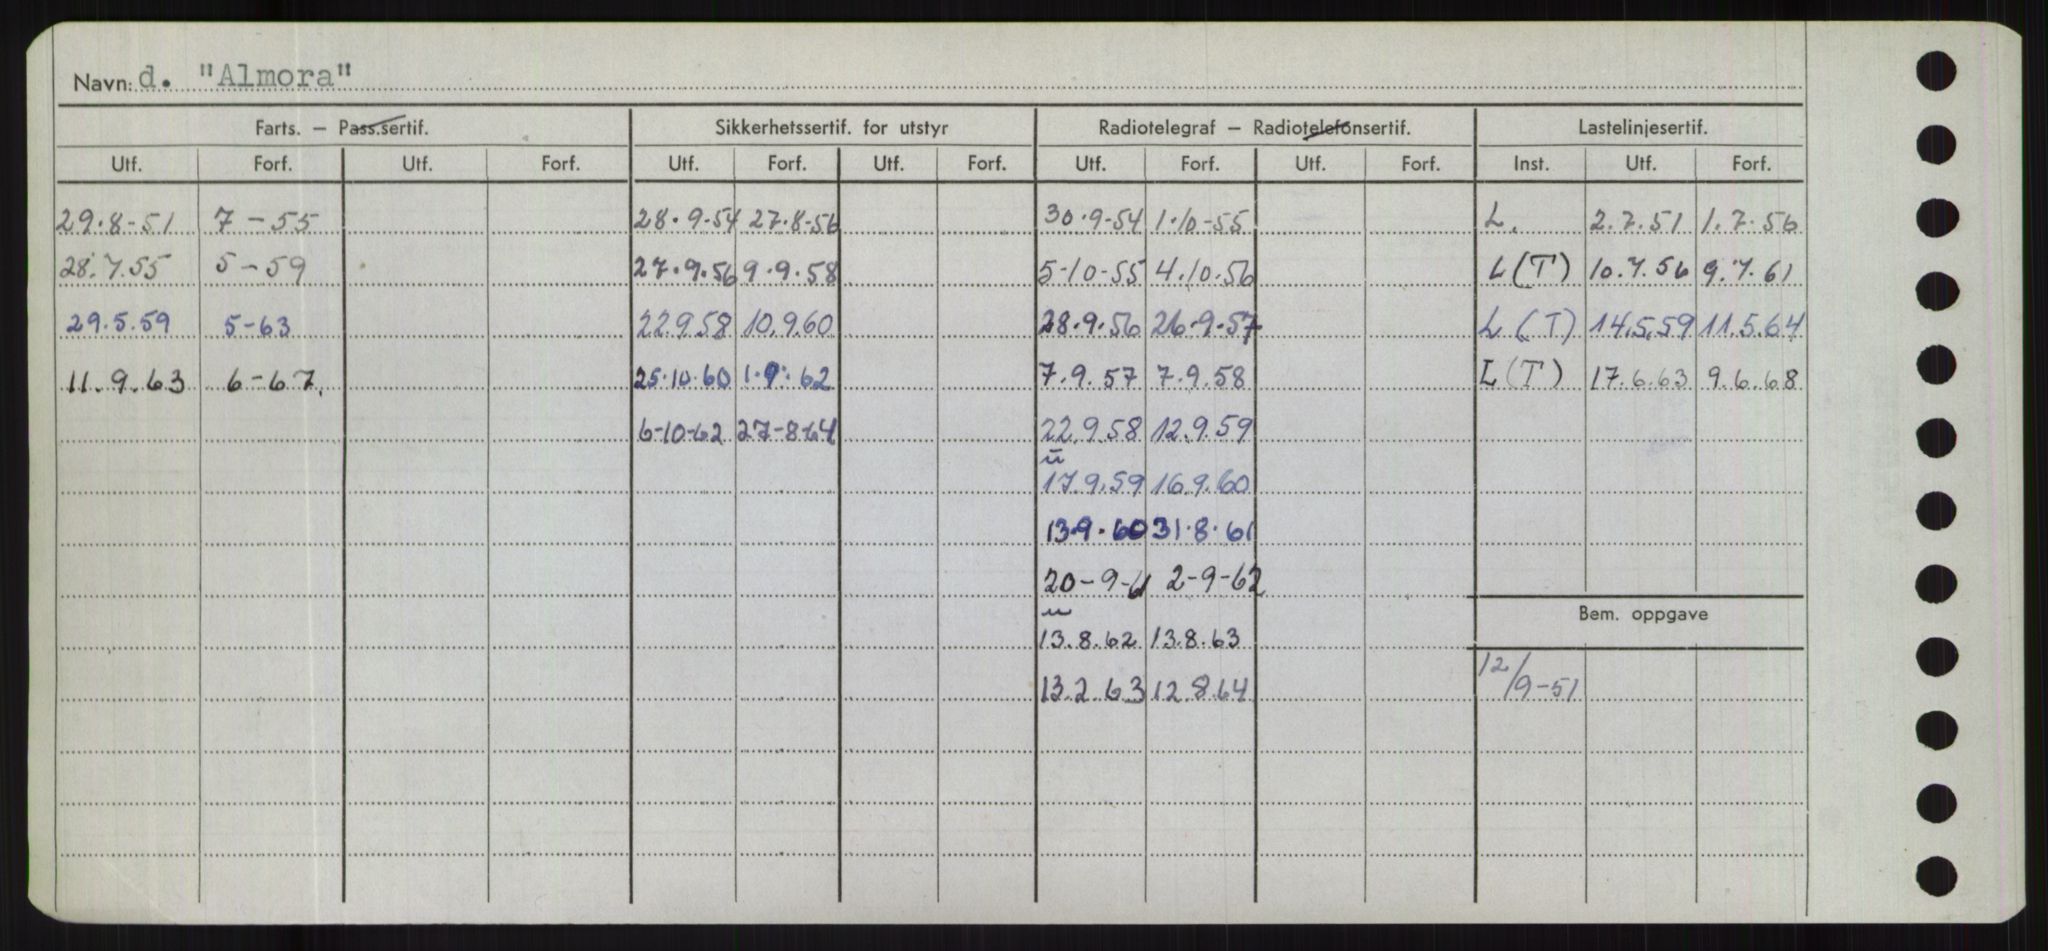 Navn: d. "Almora"
Farts. – Pass.sertif. Sikkerhetssertif. for utstyr Radiotelegraf – Radiotelefonsertif. Lastelinjesertif.
Utf. Forf. Utf. Forf. Utf. Forf. Utf. Forf. Utf. Forf. Utf. Forf. Inst. Utf. Forf.
29.8-51 7-55 28.9-54 27.8-56 30.9-54 1.10-55 L. 2.7.51 1.7.56
28.7.55 5-59 27.9.56 9.9.58 5-10-55 4.10.56 L(T) 10.7.56 9.7.61
29.5.59 5-63 22.9.58 10.9.60 28.9.56 26.9.57 L(T) 14.5.59 11.5.64
11.9.63 6-67. 25.10.60 1.9.62 7.9.57 7.9.58 L(T) 17.6.63 9.6.68
6-10-62 27-8-64 22.9.58 12.9.59
u
17.9.59 16.9.60
13.9.60 31.8.61
20-9-61 2-9-62
u
Bem. oppgave
13.8.62 13.8.63
12/9-51
13.2.63 12.8.64